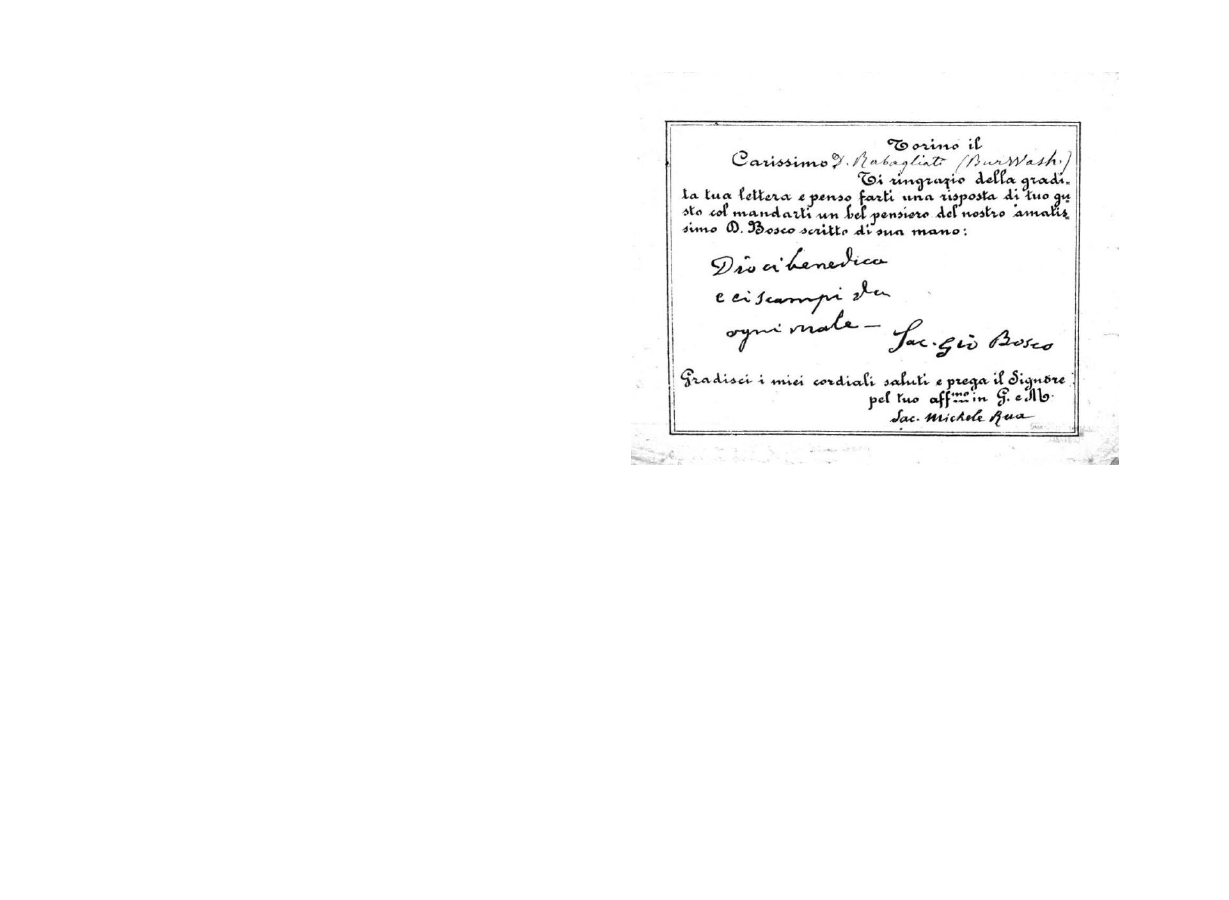 Torino il
Carissimo D. Rabagliati (BurWash.)
Ti ringrazio della gradi-
ta tua lettera e penso farti una risposta di tuo gu
sto col mandarti un bel pensiero del nostro amatis
simo D. Bosco scritto di sua mano:
Dio ci benedica
e ci scampi da
ogni male —
Sac. Gio Bosco
Gradisci i miei cordiali saluti e prega il Signore
pel tuo aff.mo in G. e M.
Sac. Michele Rua